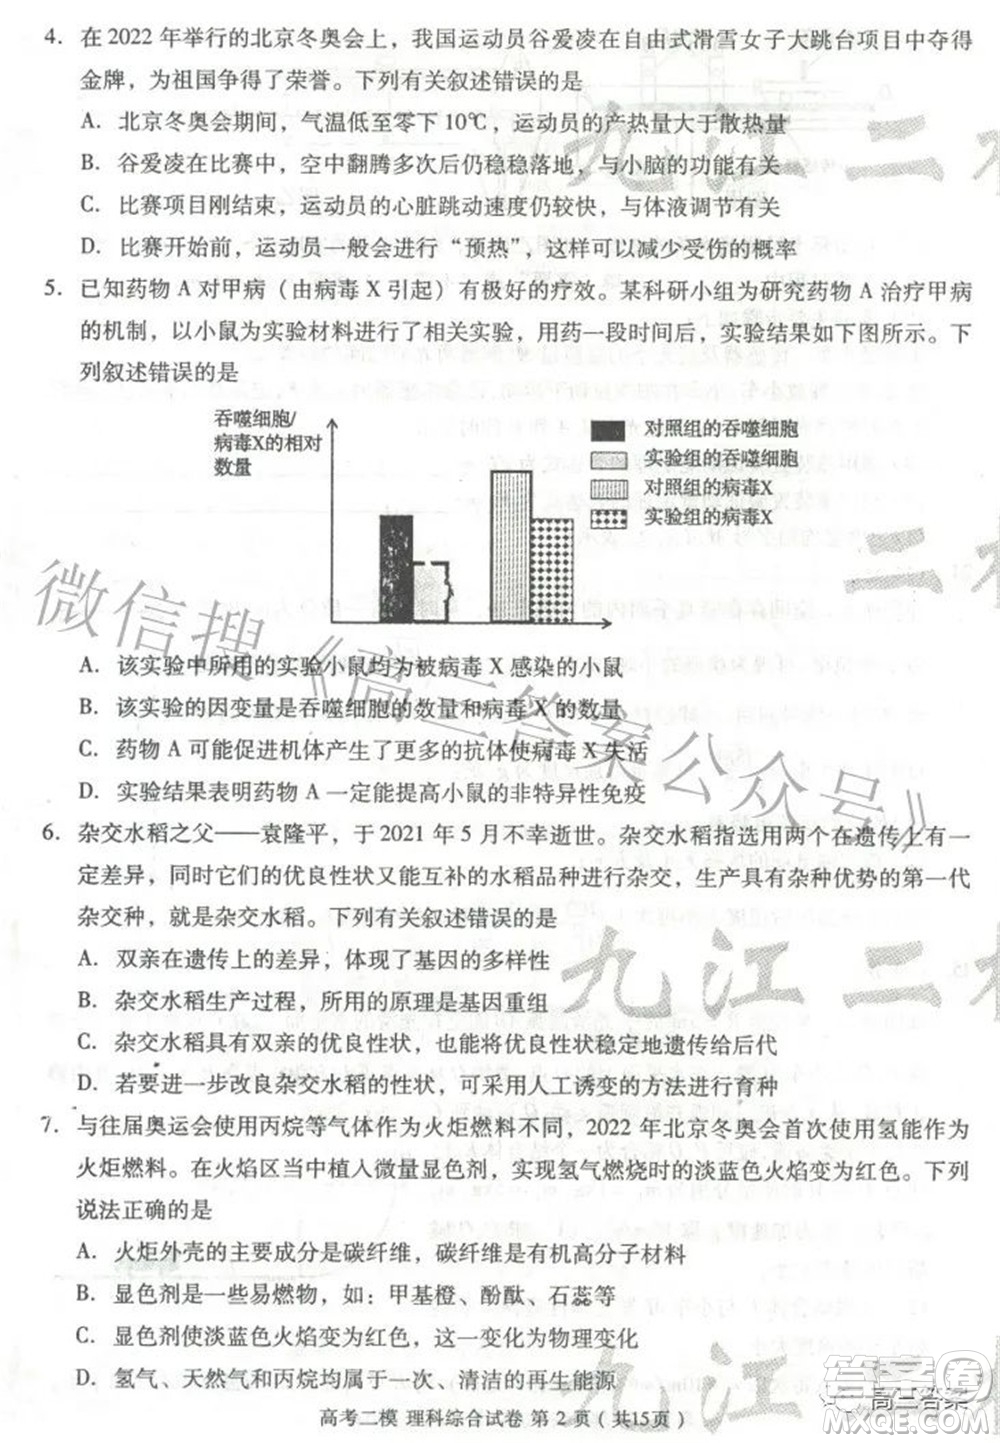 4. 在 2022 年举行的北京冬奥会上，我国运动员谷爱凌在自由式滑雪女子大跳台项目中夺得
金牌，为祖国争得了荣誉。下列有关叙述错误的是
A．北京冬奥会期间，气温低至零下 10℃，运动员的产热量大于散热量
B．谷爱凌在比赛中，空中翻腾多次后仍稳稳落地，与小脑的功能有关
C．比赛项目刚结束，运动员的心脏跳动速度仍较快，与体液调节有关
D．比赛开始前，运动员一般会进行“预热”，这样可以减少受伤的概率
5. 已知药物 A 对甲病（由病毒 X 引起）有极好的疗效。某科研小组为研究药物 A 治疗甲病
的机制，以小鼠为实验材料进行了相关实验，用药一段时间后，实验结果如下图所示。下
列叙述错误的是
吞噬细胞/
病毒X的相对
数量
对照组的吞噬细胞
实验组的吞噬细胞
对照组的病毒X
实验组的病毒X
A．该实验中所用的实验小鼠均为被病毒 X 感染的小鼠
B．该实验的因变量是吞噬细胞的数量和病毒 X 的数量
C．药物 A 可能促进机体产生了更多的抗体使病毒 X 失活
D．实验结果表明药物 A 一定能提高小鼠的非特异性免疫
6. 杂交水稻之父——袁隆平，于 2021 年 5 月不幸逝世。杂交水稻指选用两个在遗传上有一
定差异，同时它们的优良性状又能互补的水稻进行杂交，生产具有杂种优势的第一代
杂交种，就是杂交水稻。下列有关叙述错误的是
A．双亲在遗传上的差异，体现了基因的多样性
B．杂交水稻生产过程，所用的原理是基因重组
C．杂交水稻具有双亲的优良性状，也能将优良性状稳定地遗传给后代
D．若要进一步改良杂交水稻的性状，可采用人工诱变的方法进行育种
7. 与往届奥运会使用丙烷等气体作为火炬燃料不同，2022 年北京冬奥会首次使用氢能作为
火炬燃料。在火焰区当中植入微量显色剂，实现氢气燃烧时的淡蓝色火焰变为红色。下列
说法正确的是
A．火炬外壳的主要成分是碳纤维，碳纤维是有机高分子材料
B．显色剂是一些易燃物，如：甲基橙、酚酞、石蕊等
C．显色剂使淡蓝色火焰变为红色，这一变化为物理变化
D．氢气、天然气和丙烷均属于一次、清洁的再生能源
高考二模 理科综合试卷 第 2 页（共15页）
九江二模
微信搜《高三答案公众号》
九江二模
答案圈
高三答案